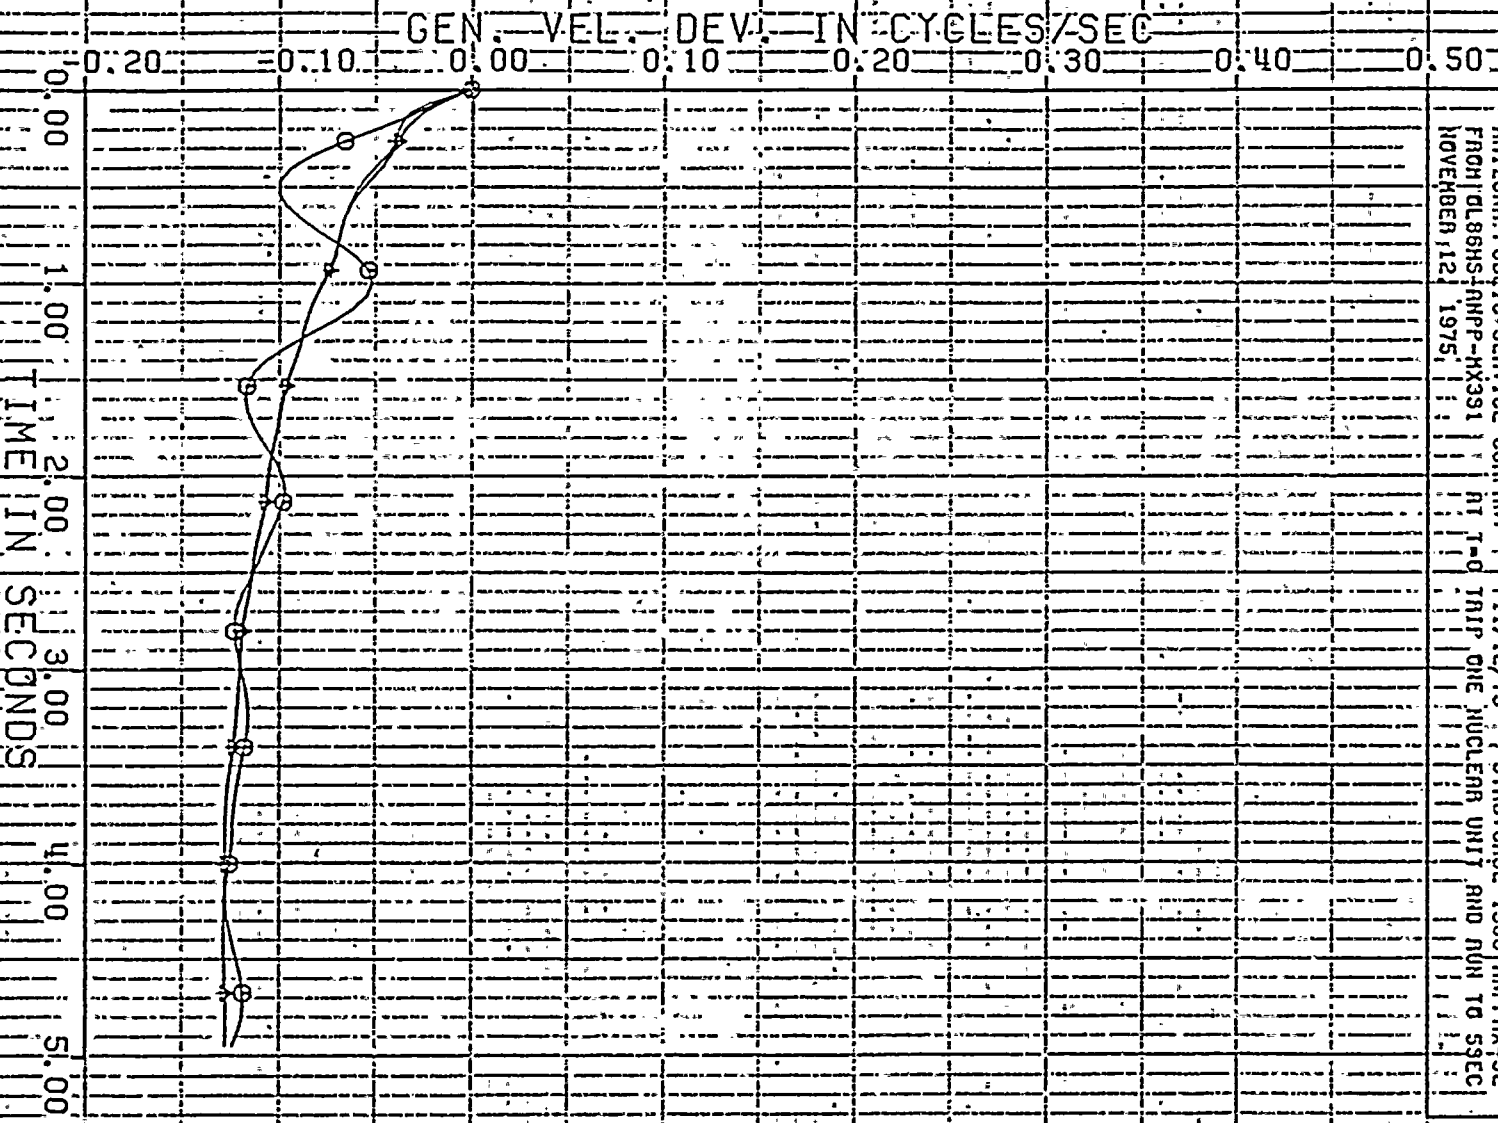 GEN. VEL. DEV. IN CYCLES/SEC
-0.20 -0.10 0.00 0.10 0.20 0.30 0.40 0.50
0.00 1.00 2.00 3.00 4.00 5.00
TIME IN SECONDS
FROM DL86HS-ANPP-MX331 AT T=0 TRIP ONE NUCLEAR UNIT AND RUN TO 5SEC
NOVEMBER,12, 1975